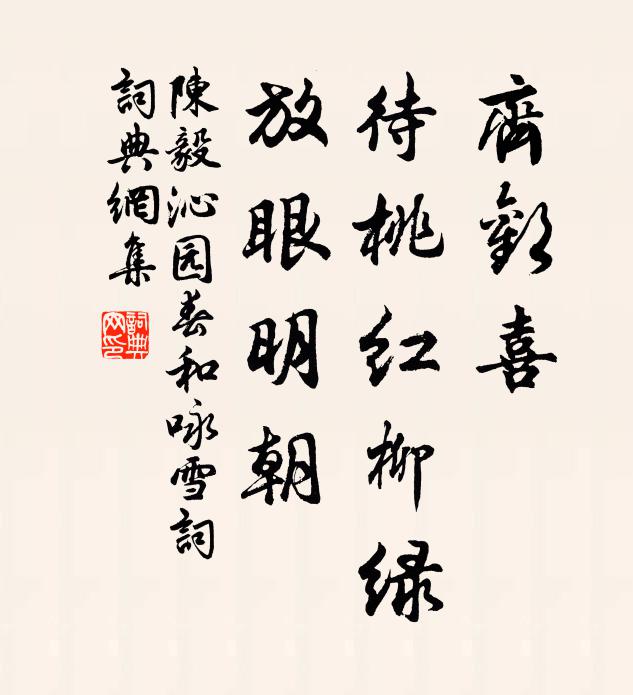 齊歡喜
待桃红柳绿
放眼明朝
陳毅沁园春和咏雪詞
詞典網集
詞典
网印